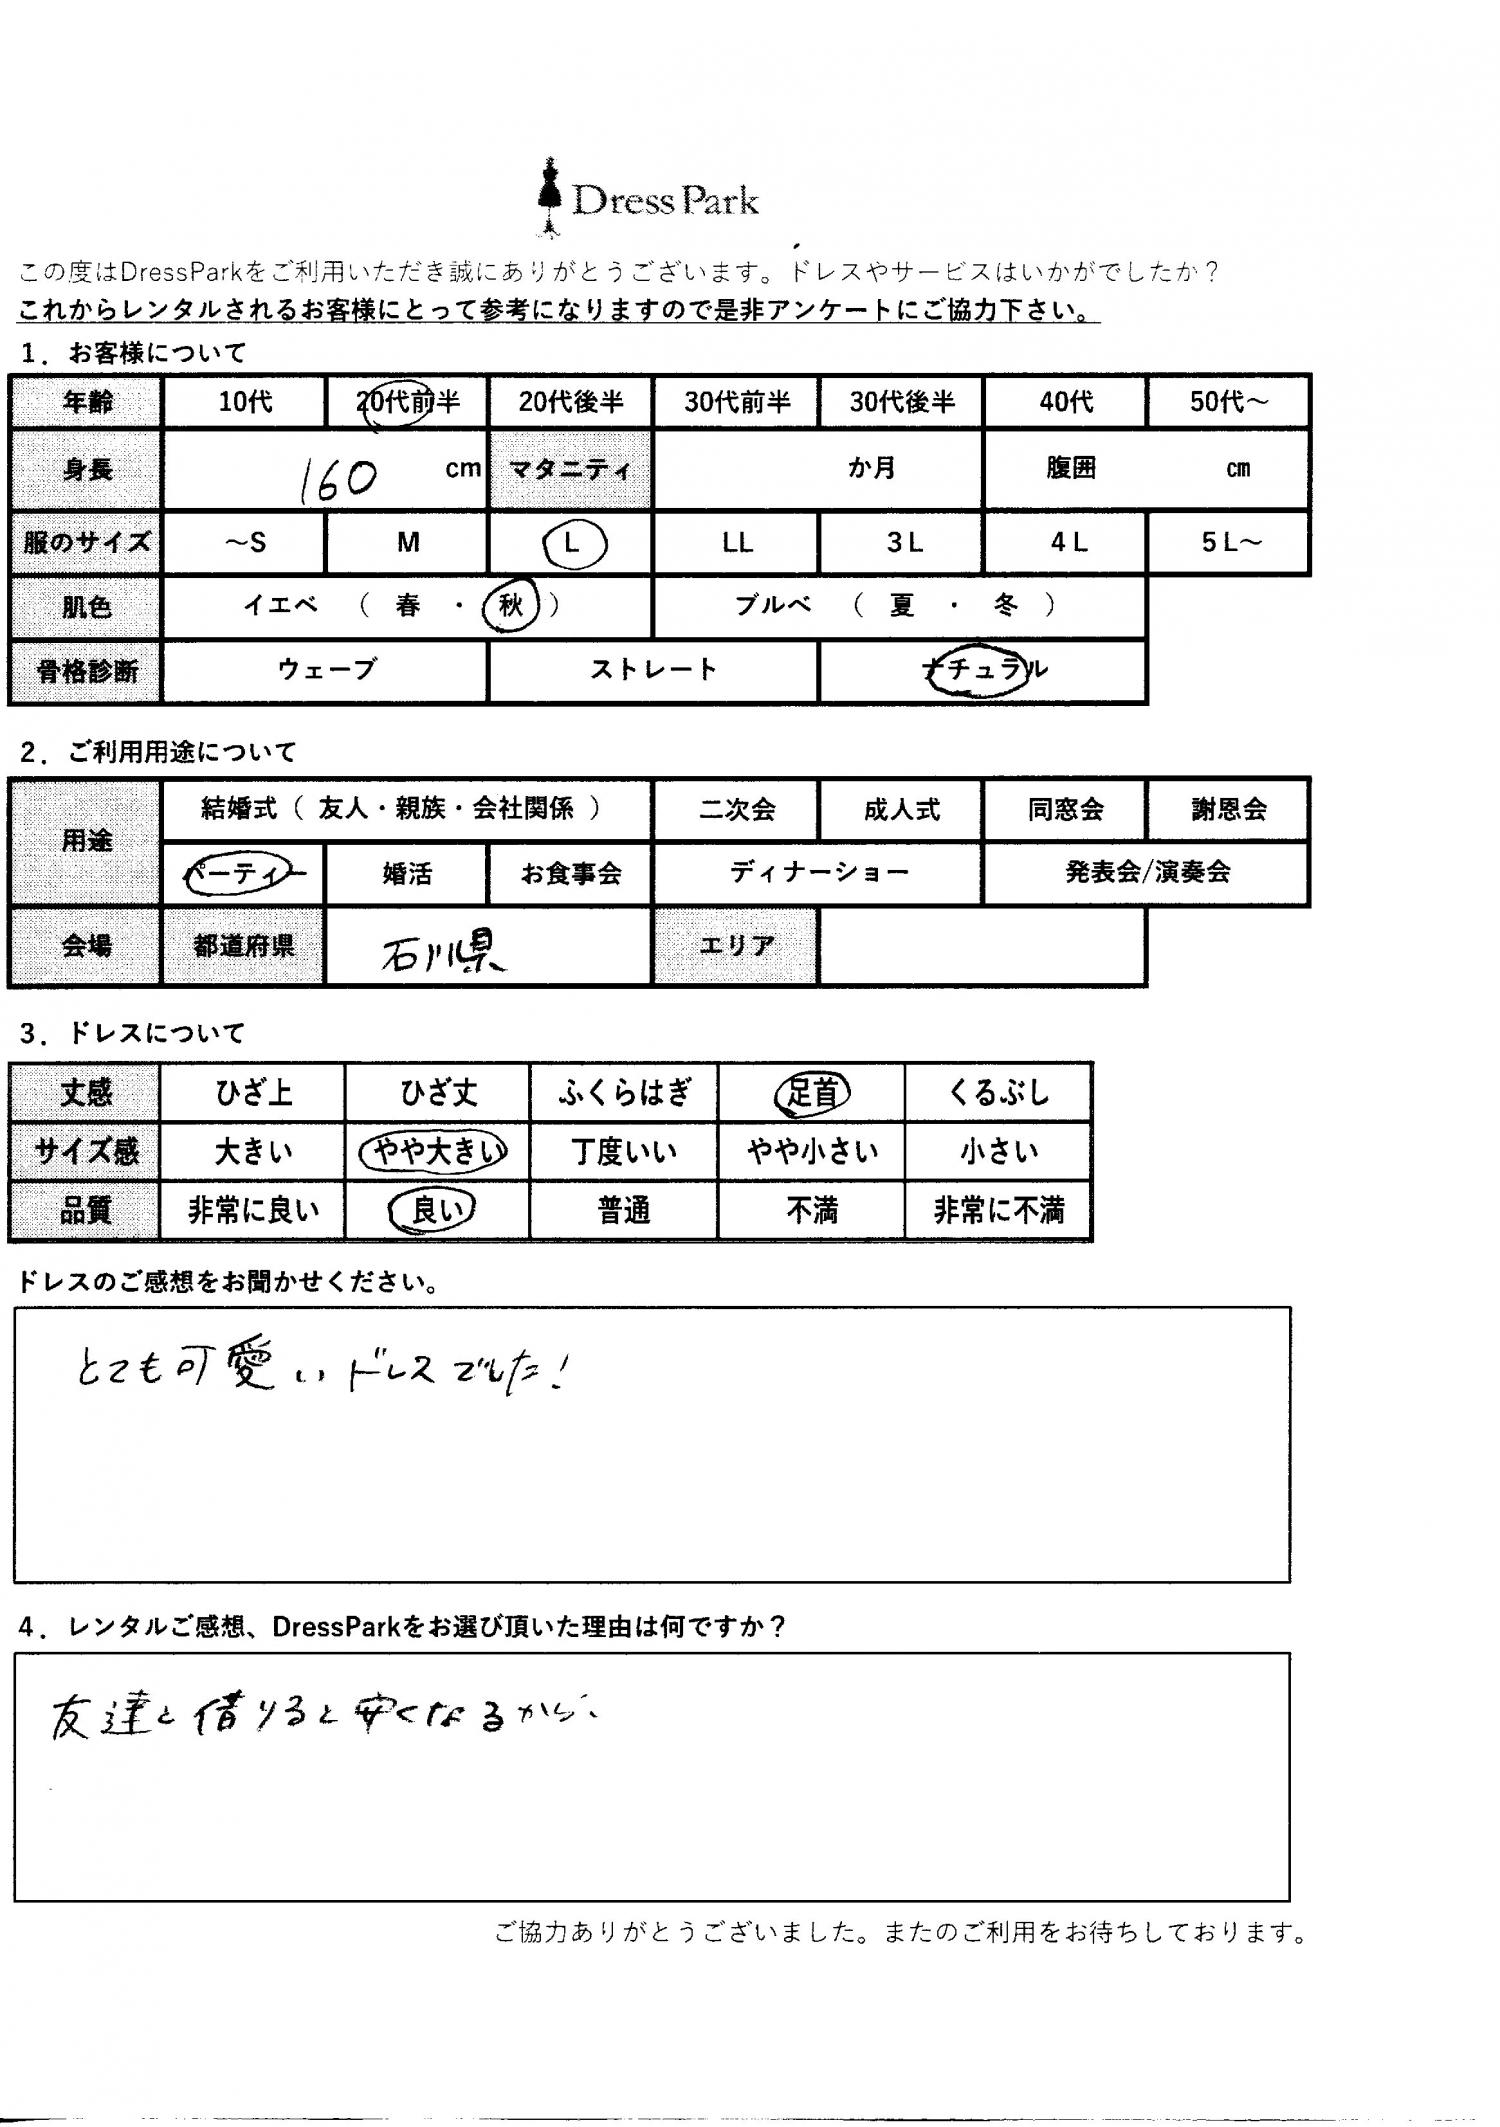 Dress Park
この度はDressParkをご利用いただき誠にありがとうございます。ドレスやサービスはいかがでしたか？
これからレンタルされるお客様にとって参考になりますので是非アンケートにご協力下さい。
1．お客様について
年齢 10代 20代前半 20代後半 30代前半 30代後半 40代 50代～
身長 160 cm マタニティ か月 腹囲 cm
服のサイズ ～S M L LL 3L 4L 5L～
肌色 イエベ （ 春 ・ 秋 ） ブルベ （ 夏 ・ 冬 ）
骨格診断 ウェーブ ストレート ナチュラル
2．ご利用用途について
用途 結婚式（ 友人・親族・会社関係 ） 二次会 成人式 同窓会 謝恩会
パーティー 婚活 お食事会 ディナーショー 発表会/演奏会
会場 都道府県 石川県 エリア
3．ドレスについて
丈感 ひざ上 ひざ丈 ふくらはぎ 足首 くるぶし
サイズ感 大きい やや大きい 丁度いい やや小さい 小さい
品質 非常に良い 良い 普通 不満 非常に不満
ドレスのご感想をお聞かせください。
とても可愛いドレスでした！
4．レンタルご感想、DressParkをお選び頂いた理由は何ですか？
友達と借りると安くなるから、
ご協力ありがとうございました。またのご利用をお待ちしております。